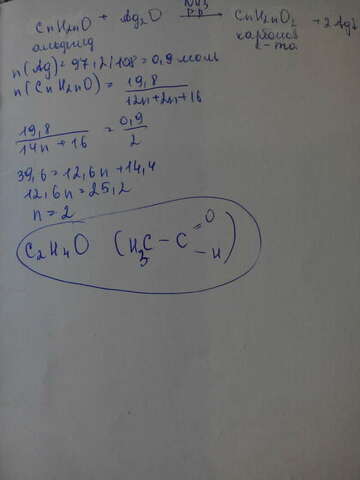 CnH2nO + Ag2O NH3 р-р → CnH2nO2 + 2Ag↓
альдегид карбонов. к-та
n(Ag) = 97,2/108 = 0,9 моль
n(CnH2nO) = 19,8 / 12n+2n+16
19,8 / 14n + 16 = 0,9 / 2
39,6 = 12,6n + 14,4
12,6n = 25,2
n = 2
C2H4O (H3C – C =O –H)